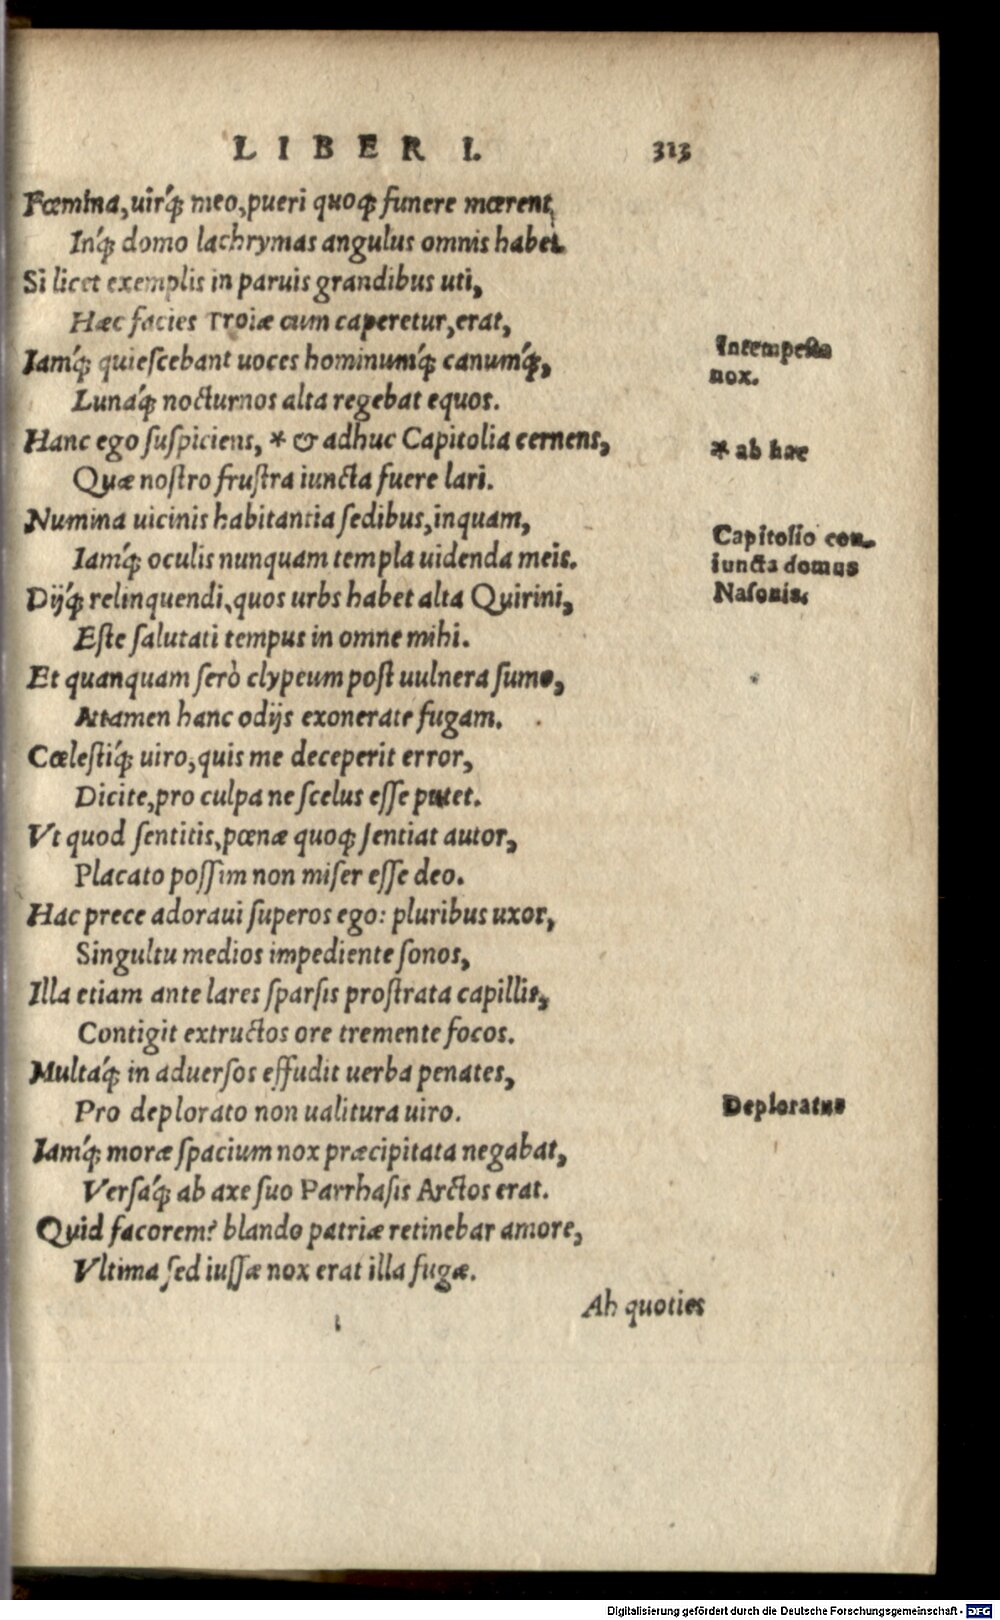 LIBER I. 313
Fœmina, uirq́; meo, pueri quoq; funere mœrent,
Inq́; domo lachrymas angulus omnis habet.
Si licet exemplis in paruis grandibus uti,
Hæc facies Troiæ cum caperetur, erat,
Iamq́; quiescebant uoces hominumq́; canumq́;,
Intempesta
nox.
Lunaq́; nocturnos alta regebat equos.
Hanc ego suspiciens, * & adhuc Capitolia cernens,
* ab hac
Quæ nostro frustra iuncta fuere lari.
Numina uicinis habitantia sedibus, inquam,
Iamq́; oculis nunquam templa uidenda meis.
Capitolio con-
iuncta domus
Nasonis.
Dijq́; relinquendi, quos urbs habet alta Quirini,
Este salutati tempus in omne mihi.
Et quanquam serò clypeum post uulnera sumo,
Attamen hanc odijs exonerate fugam.
Cœlestiq́; uiro, quis me deceperit error,
Dicite, pro culpa ne scelus esse putet.
Vt quod sentitis, pœnæ quoq; sentiat autor,
Placato possim non miser esse deo.
Hac prece adoraui superos ego: pluribus uxor,
Singultu medios impediente sonos,
Illa etiam ante lares sparsis prostrata capillis,
Contigit extructos ore tremente focos.
Multaq́; in aduersos effudit uerba penates,
Pro deplorato non ualitura uiro.
Deploratus
Iamq́; moræ spacium nox præcipitata negabat,
Versaq́; ab axe suo Parrhasis Arctos erat.
Quid facorem? blando patriæ retinebar amore,
Vltima sed iussæ nox erat illa fugæ.
Ah quoties
Digitalisierung gefördert durch die Deutsche Forschungsgemeinschaft - DFG